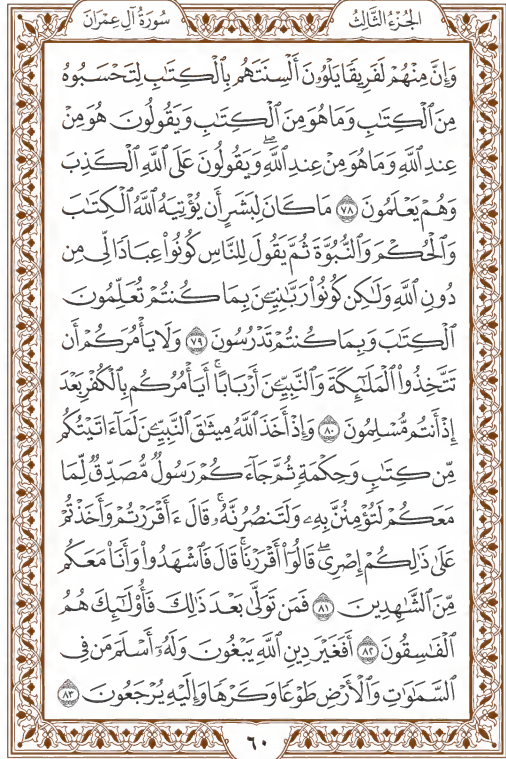 الجزء الثالث
سورة آل عمران
وَإِنَّ مِنْهُمْ لَفَرِيقًا يَلْوُۥنَ أَلْسِنَتَهُم بِٱلْكِتَٰبِ لِتَحْسَبُوهُ
مِنَ ٱلْكِتَٰبِ وَمَا هُوَ مِنَ ٱلْكِتَٰبِ وَيَقُولُونَ هُوَ مِنْ
عِندِ ٱللَّهِ وَمَا هُوَ مِنْ عِندِ ٱللَّهِۖ وَيَقُولُونَ عَلَى ٱللَّهِ ٱلْكَذِبَ
وَهُمْ يَعْلَمُونَ ٧٨ مَا كَانَ لِبَشَرٍ أَن يُؤْتِيَهُ ٱللَّهُ ٱلْكِتَٰبَ
وَٱلْحُكْمَ وَٱلنُّبُوَّةَ ثُمَّ يَقُولَ لِلنَّاسِ كُونُوا۟ عِبَادًا لِّى مِن
دُونِ ٱللَّهِ وَلَٰكِن كُونُوا۟ رَبَّٰنِيِّـۧنَ بِمَا كُنتُمْ تُعَلِّمُونَ
ٱلْكِتَٰبَ وَبِمَا كُنتُمْ تَدْرُسُونَ ٧٩ وَلَا يَأْمُرَكُمْ أَن
تَتَّخِذُوا۟ ٱلْمَلَٰٓئِكَةَ وَٱلنَّبِيِّـۧنَ أَرْبَابًاۗ أَيَأْمُرُكُم بِٱلْكُفْرِ بَعْدَ
إِذْ أَنتُم مُّسْلِمُونَ ٨٠ وَإِذْ أَخَذَ ٱللَّهُ مِيثَٰقَ ٱلنَّبِيِّـۧنَ لَمَآ ءَاتَيْتُكُم
مِّن كِتَٰبٍ وَحِكْمَةٍ ثُمَّ جَآءَكُمْ رَسُولٌ مُّصَدِّقٌ لِّمَا
مَعَكُمْ لَتُؤْمِنُنَّ بِهِۦ وَلَتَنصُرُنَّهُۥۚ قَالَ ءَأَقْرَرْتُمْ وَأَخَذْتُمْ
عَلَىٰ ذَٰلِكُمْ إِصْرِىۖ قَالُوٓا۟ أَقْرَرْنَاۚ قَالَ فَٱشْهَدُوا۟ وَأَنَا۠ مَعَكُم
مِّنَ ٱلشَّٰهِدِينَ ٨١ فَمَن تَوَلَّىٰ بَعْدَ ذَٰلِكَ فَأُو۟لَٰٓئِكَ هُمُ
ٱلْفَٰسِقُونَ ٨٢ أَفَغَيْرَ دِينِ ٱللَّهِ يَبْغُونَ وَلَهُۥٓ أَسْلَمَ مَن فِى
ٱلسَّمَٰوَٰتِ وَٱلْأَرْضِ طَوْعًا وَكَرْهًا وَإِلَيْهِ يُرْجَعُونَ ٨٣
٦٠